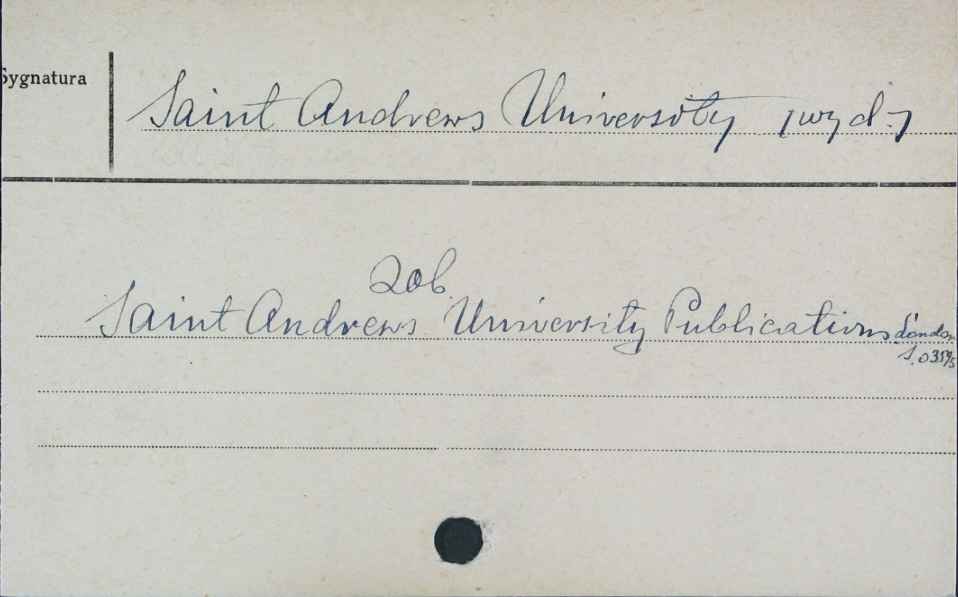 Sygnatura
Saint Andrews University (wyd.)
Zob.
Saint Andrews University Publications London